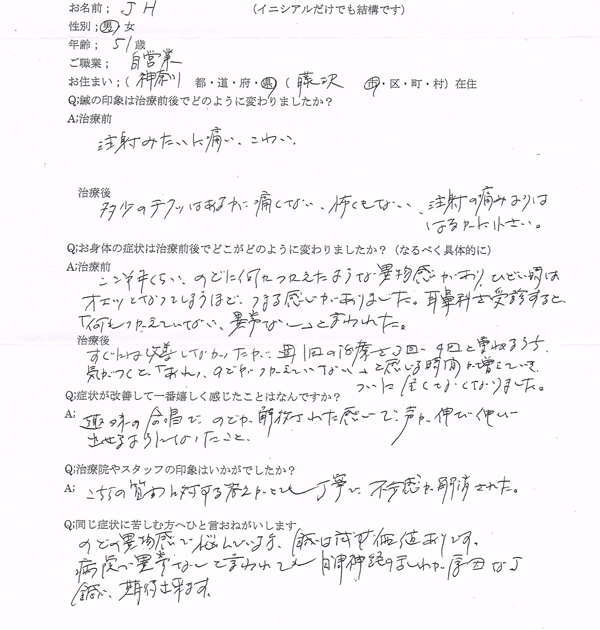 お名前； J H （イニシアルだけでも結構です）
性別；男・女
年齢； 51歳
ご職業； 自営業
お住まい；（ 神奈川 都・道・府・県（ 藤沢 市・区・町・村）在住
Q:鍼の印象は治療前後でどのように変わりましたか？
A:治療前
注射みたいに痛い、こわい。
治療後
多少のチクッはあるが痛くない、怖くもない、注射の痛みよりは
はるかに小さい。
Q:お身体の症状は治療前後でどこがどのように変わりましたか？（なるべく具体的に）
A:治療前
ここ半年くらい、のどに何かつかえたような異物感があり、ひどい時は
オエッとなってしまうほど、つまる感じがありました。耳鼻科を受診すると
「何もつかえていない、異常なし」と言われた。
治療後
すぐには改善しなかったが、週1回の治療を3回、4回と重ねるうち、
気がつくと「あれ、のどがつかえていない」と感じる時間が増えていき
ついに全くなくなりました。
Q:症状が改善して一番嬉しく感じたことはなんですか？
A: 趣味の合唱で、のどが解放された感じで声が伸び伸び
出せるようになったこと。
Q:治療院やスタッフの印象はいかがでしたか？
A: こちらの質問に対する答えがとても丁寧で、不安感が解消された。
Q:同じ症状に苦しむ方へひと言おねがいします
のどの異物感で悩んでいる方、鍼は試す価値ありです。
病院で異常なしと言われても自律神経の が原因なら
鍼で、期待出来ます。